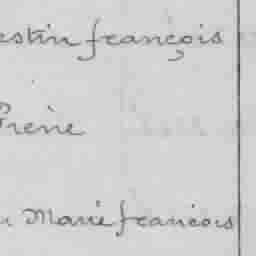 estin françois
Prène
u Marie françois